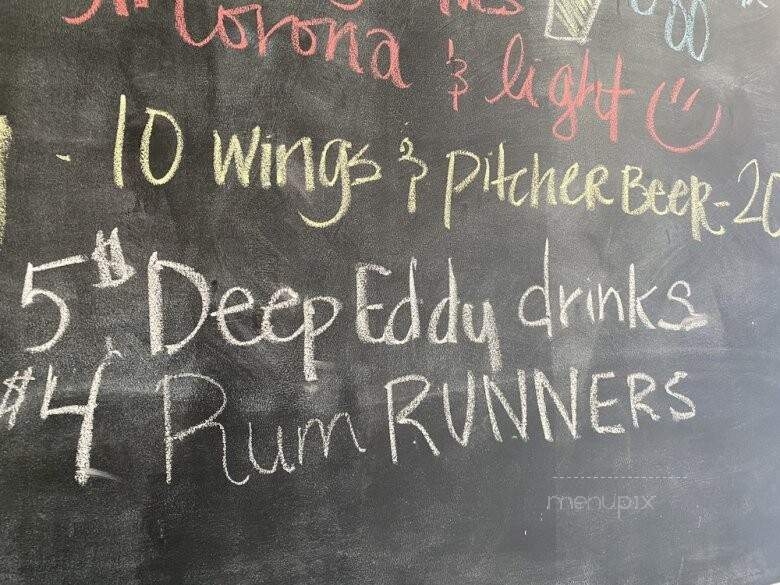 Corona & light
- 10 wings & pitcher Beer - 20
5$ Deep Eddy drinks
$4 Rum RUNNERS
menupix